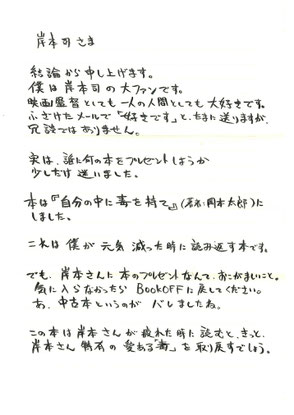 岸本司さま
結論から申し上げます。
僕は岸本司の大ファンです。
映画監督としても一人の人間としても大好きです。
ふざけたメールで「好きです」と、たまに送りますが、
冗談ではありません。
実は、誰に何の本をプレゼントしようか
少しだけ迷いました。
本は『自分の中に毒を持て』(著者:岡本太郎)に
しました。
これは僕が元気減った時に読み返す本です。
でも、岸本さんに本のプレゼントなんて、おこがましいこと。
気に入らなかったらBOOKOFFに戻してください。
あ、中古本というのがバレましたね。
この本は岸本さんが疲れた時に読むと、きっと、
岸本さん特有の愛ある「毒」を取り戻すでしょう。